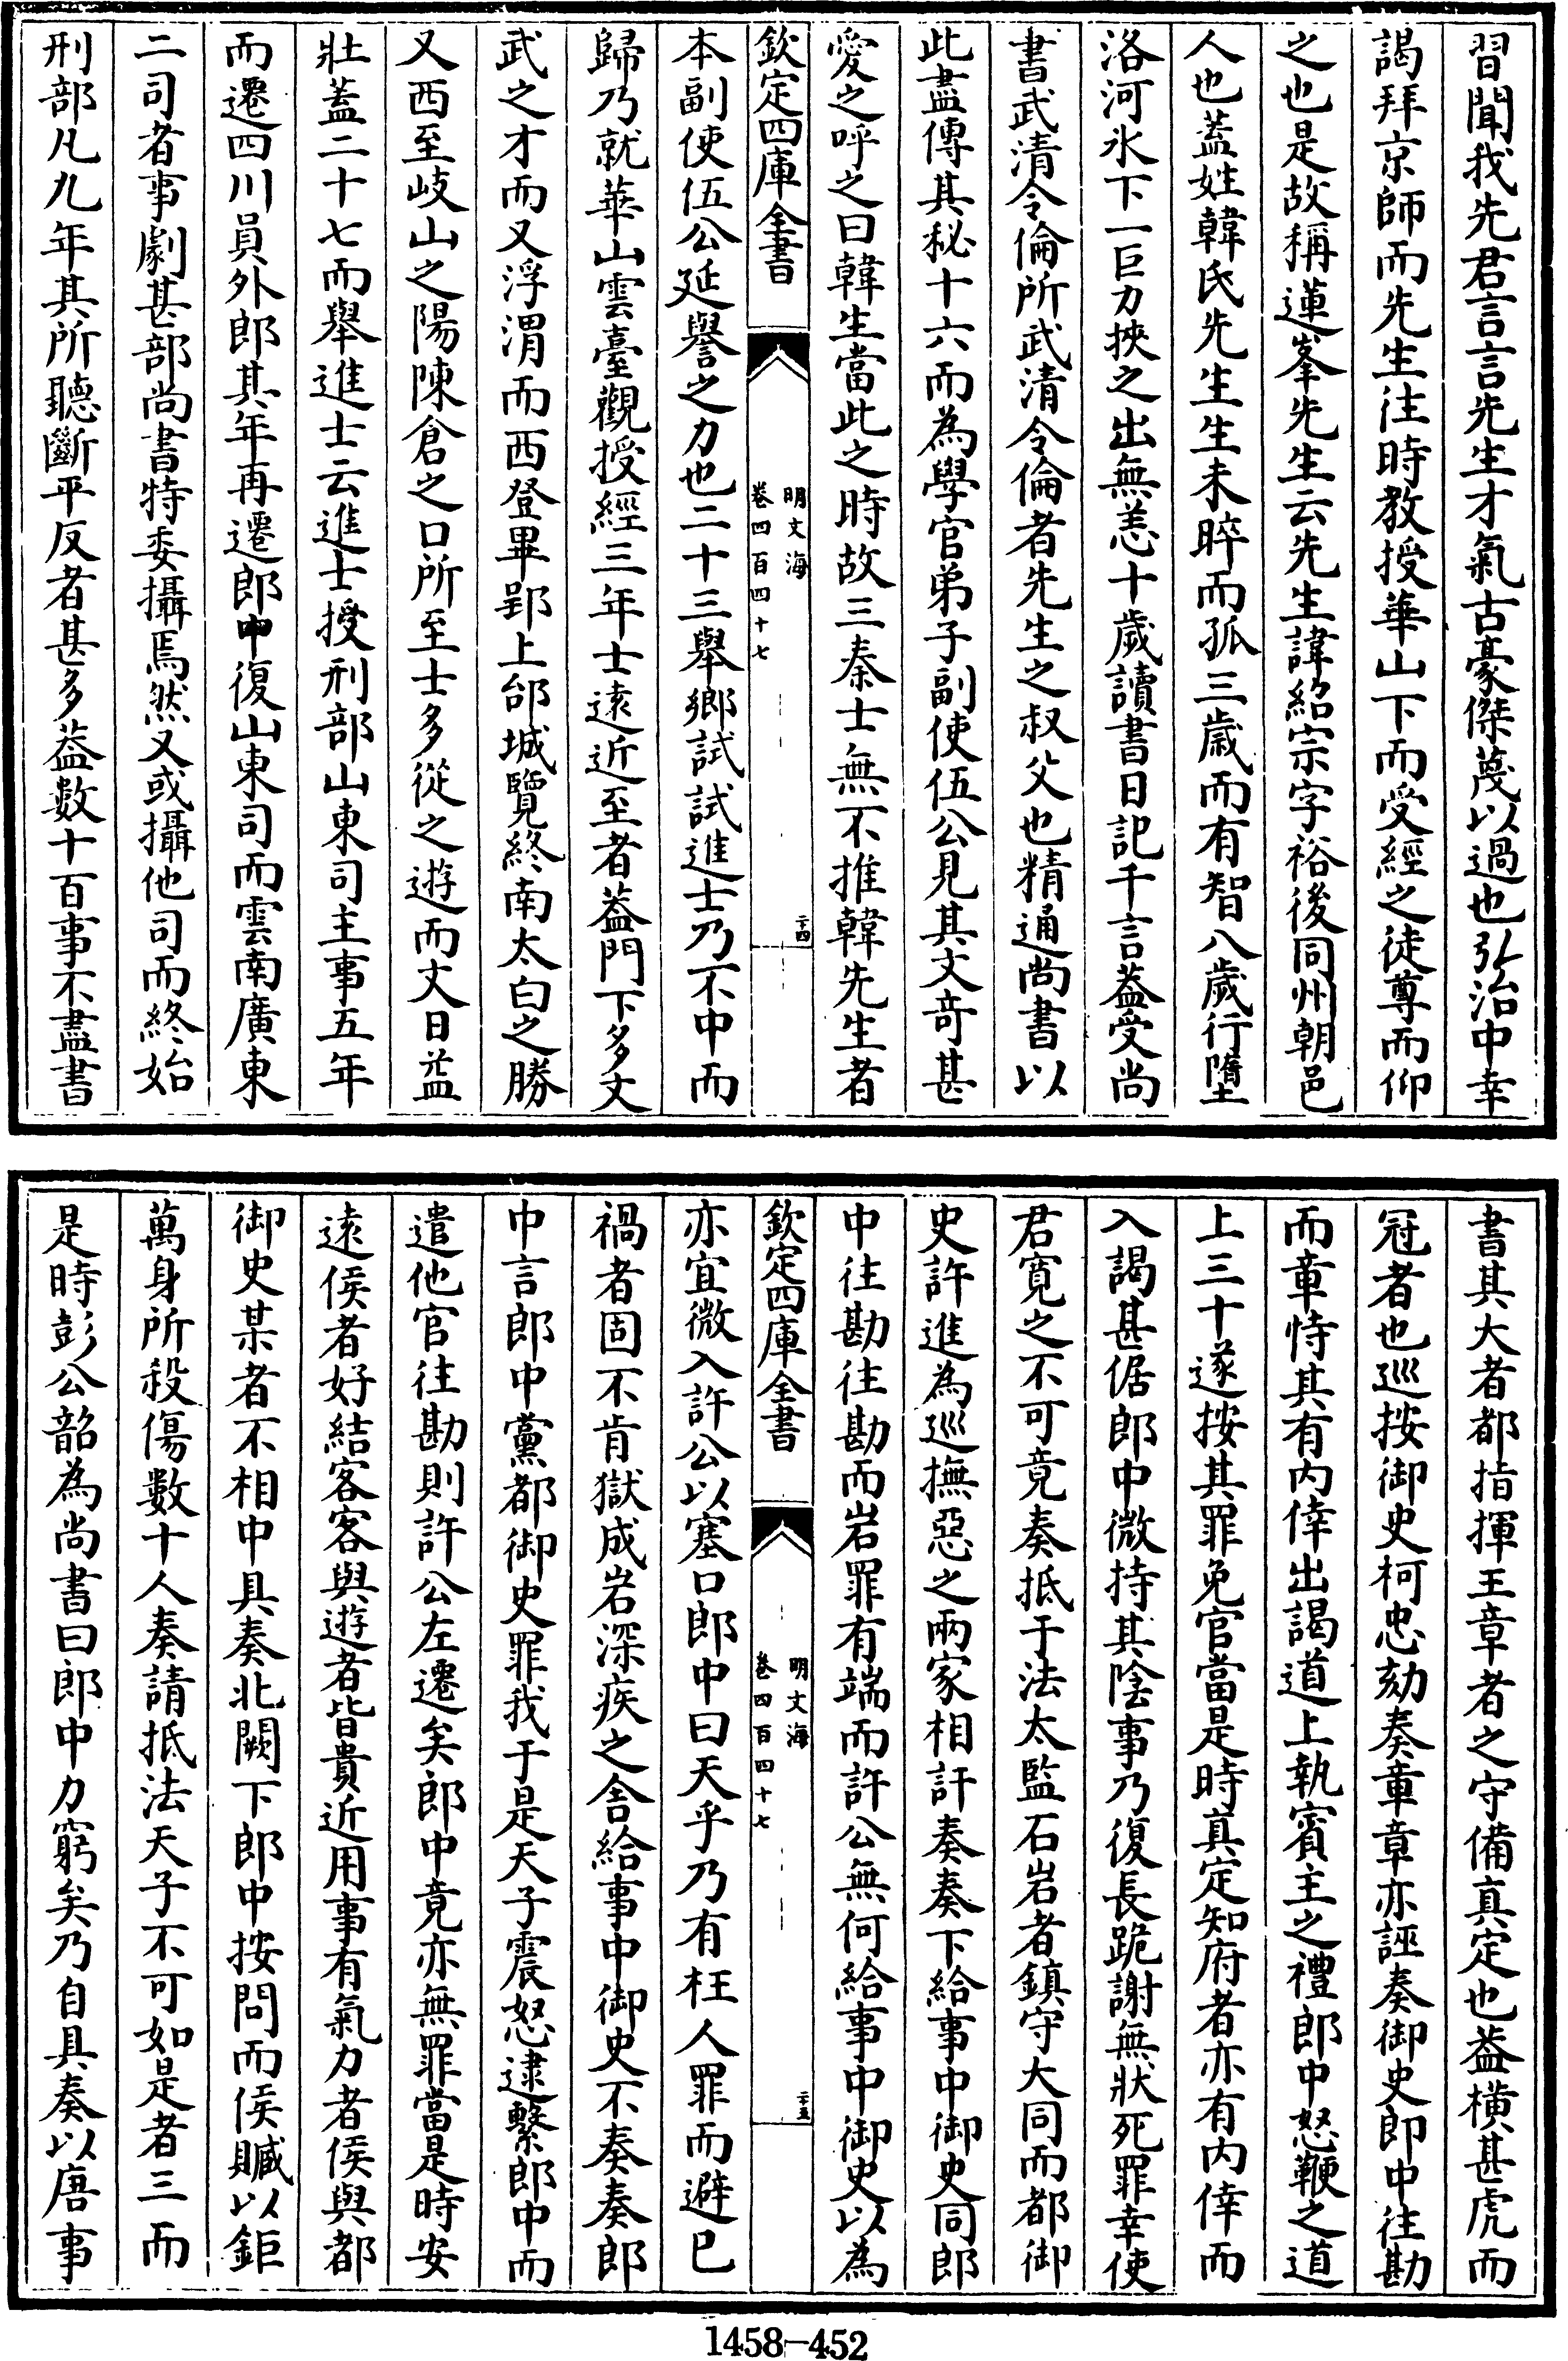 習聞我先君言言先生才氣古豪傑蔑以過也弘治中幸
謁拜京師而先生往時教授華山下而受經之徒尊而仰
之也是故稱蓮峯先生云先生諱紹宗字裕後同州朝邑
人也蓋姓韓氏先生生未晬而孤三歲而有智八歲行墮
洛河氷下一巨力挾之出無恙十歲讀書日記千言蓋受尚
書武清令倫所武清令倫者先生之叔父也精通尚書以
此盡傳其秘十六而為學官弟子副使伍公見其文奇甚
愛之呼之曰韓生當此之時故三秦士無不推韓先生者
欽定四庫全書
明文海
卷四百四十七
二十四
本副使伍公延譽之力也二十三舉鄉試試進士乃不中而
歸乃就華山雲臺觀授經三年士遠近至者葢門下多文
武之才而又浮渭而西登畢郢上邰城覽終南太白之勝
又西至岐山之陽陳倉之口所至士多從之遊而文日益
壯蓋二十七而舉進士云進士授刑部山東司主事五年
而遷四川員外郎其年再遷郎中復山東司而雲南廣東
二司者事劇甚部尚書特委攝焉然又或攝他司而終始
刑部凡九年其所聽斷平反者甚多葢數十百事不盡書
書其大者都指揮王章者之守備真定也益橫甚虎而
冠者也巡按御史柯忠劾奏章章亦誣奏御史郎中往勘
而章恃其有內倖出謁道上執賓主之禮郎中怒鞭之道
上三十遂按其罪免官當是時真定知府者亦有內倖而
入謁甚倨郎中微持其陰事乃復長跪謝無狀死罪幸使
君寬之不可竟奏抵于法太監石岩者鎮守大同而都御
史許進為巡撫惡之兩家相訐奏奏下給事中御史同郎
中往勘往勘而岩罪有端而許公無何給事中御史以為
欽定四庫全書
明文海
卷四百四十七
二十五
亦宜微入許公以塞口郎中曰天乎乃有枉人罪而避已
禍者固不肯獄成岩深疾之舍給事中御史不奏奏郎
中言郎中黨都御史罪我于是天子震怒逮繫郎中而
遣他官往勘則許公左遷矣郎中竟亦無罪當是時安
遠侯者好結客客與遊者皆貴近用事有氣力者侯與都
御史某者不相中具奏北闕下郎中按問而侯贓以鉅
萬身所殺傷數十人奏請抵法天子不可如是者三而
是時彭公韶為尚書曰郎中力窮矣乃自具奏以唐事
1458-452